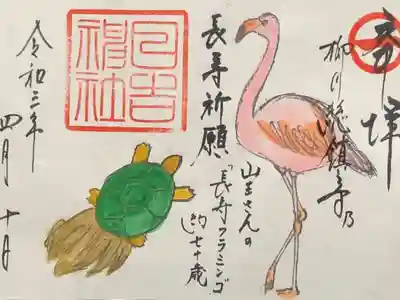 奉拝
柳川総鎮守乃
山王さんの
「長寿フラミンゴ」
約七十歳
長寿祈願
日吉
神社
令和三年
四月十日